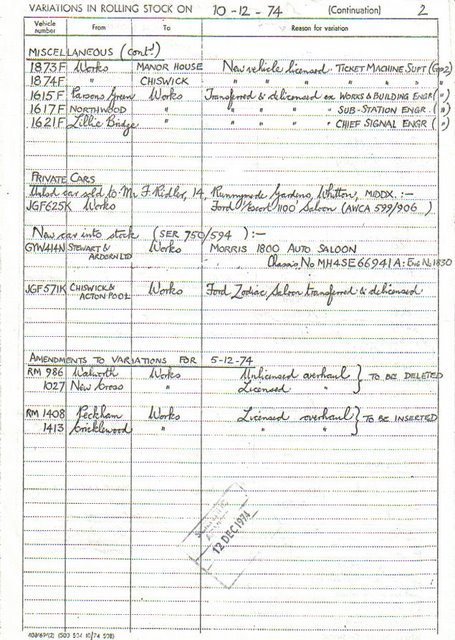 VARIATIONS IN ROLLING STOCK ON 10-12-74 (Continuation) 2
Vehicle number From To Reason for variation
MISCELLANEOUS (cont'd)
1873F Works MANOR HOUSE New vehicle licensed TICKET MACHINE SUPT (Gp2)
1874F " CHISWICK " " " " " " "
1615F Parsons Green Works Transferred & delicensed ex WORKS & BUILDING ENGR (")
1617F NORTHWOOD " " " " SUB-STATION ENGR. (")
1621F Lillie Bridge " " " " CHIEF SIGNAL ENGR (")
PRIVATE CARS
Used car sold to Mr F. Ridler, 14, Runnymede Gardens, Whitton, MIDDX. :-
JGF625K Works Ford Escort 1100 Saloon (AWCA 599/906)
New car into stock (SER 750/594) :-
GYW414N STEWART & ARDERN LTD Works MORRIS 1800 AUTO SALOON
Chassis No MH4SE66941A: Eng No 1830
JGF571K CHISWICK & ACTON POOL Works Ford Zodiac Saloon transferred & delicensed
AMENDMENTS TO VARIATIONS FOR 5-12-74
RM 986 Walworth Works Unlicensed overhaul } TO BE DELETED
1027 New Cross " Licensed "
RM 1408 Peckham Works Licensed overhaul } TO BE INSERTED
1413 Cricklewood " " "
12 DEC 1974